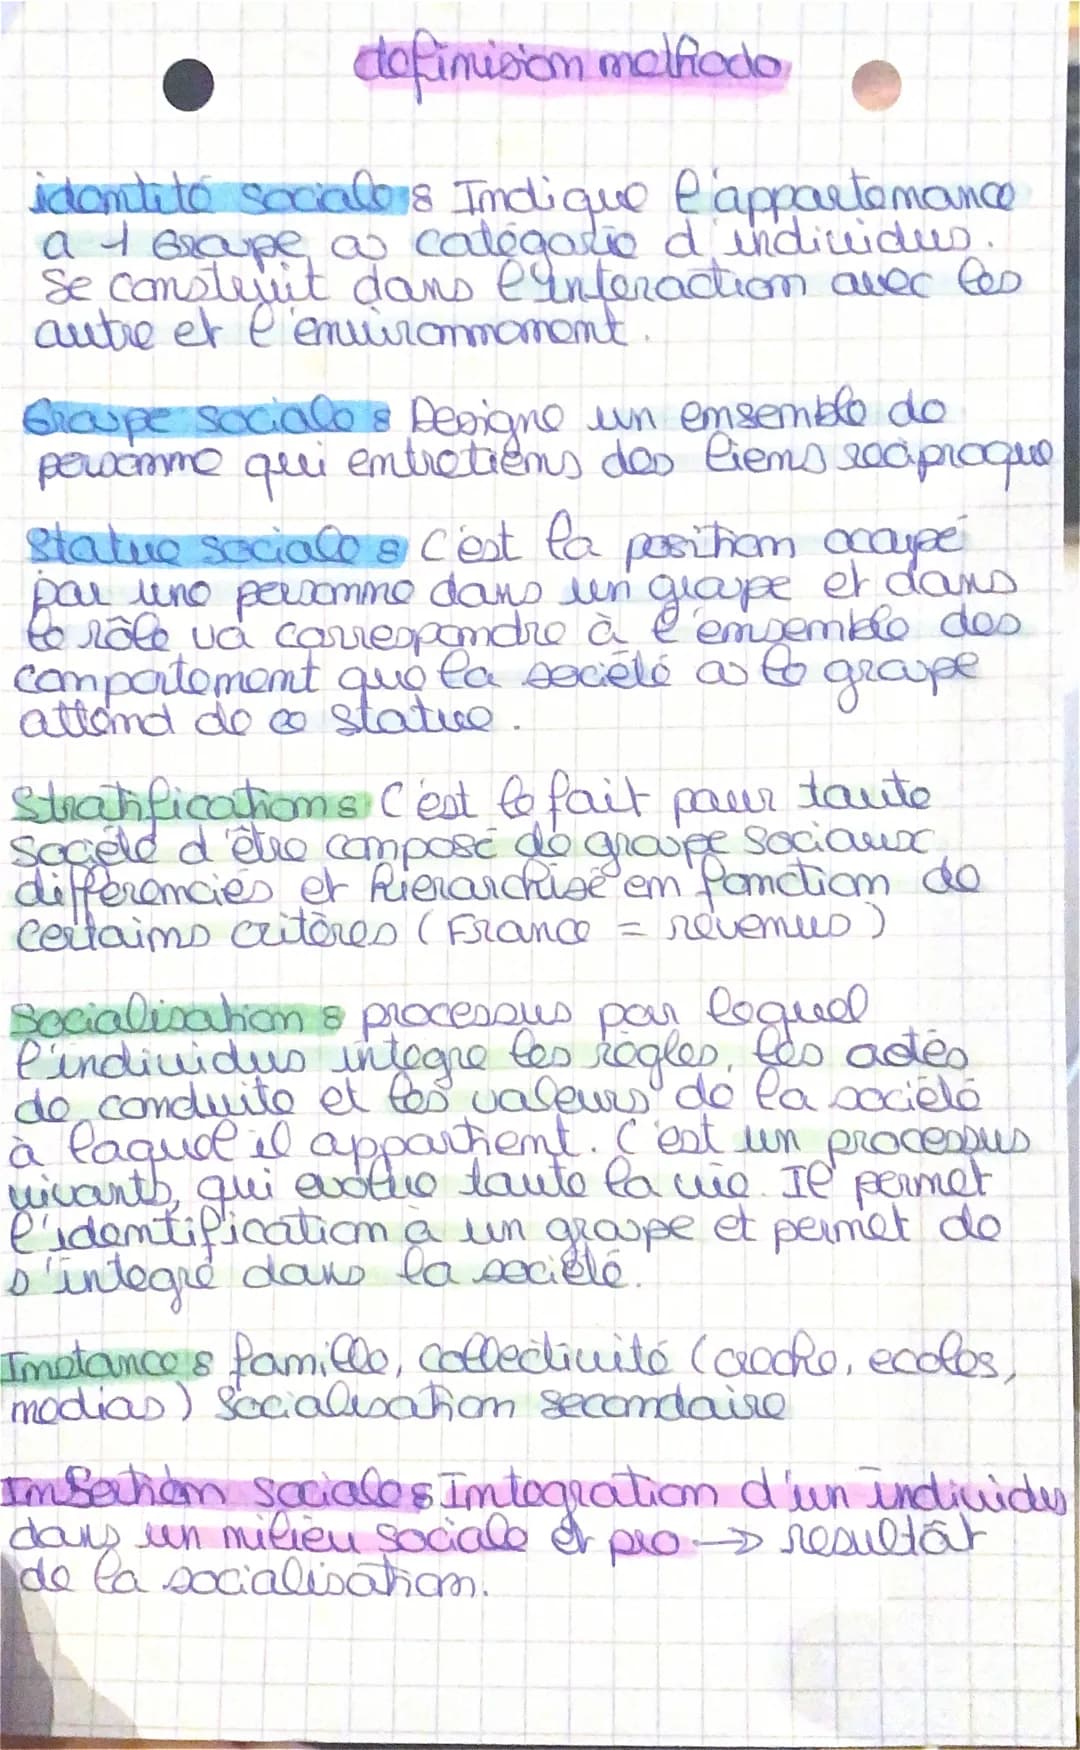 definision methodo
identité sociale : Indique l'appartenance
a 1 Groupe ou catégorie d'individus.
Se construit dans l'interaction avec les
autre et l'environnement.
Groupe sociale : Designe un ensemble de
personne qui entretiens des liens reciproque
Statue sociale : C'est la position occupé
par une personne dans un groupe et dans
le rôle va correspondre à l'ensemble des
comportement que la société ou le groupe
attend de ce statue.
Stratification : C'est le fait pour toute
société d'être composé de groupe sociaux
differenciés et hierarchisé en fonction de
certains critères (France = revenus)
Socialisation : processus par lequel
l'individus integre les règles, les actes
de conduite et les valeurs de la société
à laquel il appartient. C'est un processus
vivants, qui evolue toute la vie. Il permet
l'identification à un groupe et permet de
s'integré dans la société.
Instance : famille, collectivité (creche, ecoles,
medias) Socialisation secondaire
Insertion sociale : Integration d'un individus
dans un milieu sociale et pro → resultat
de la socialisation.